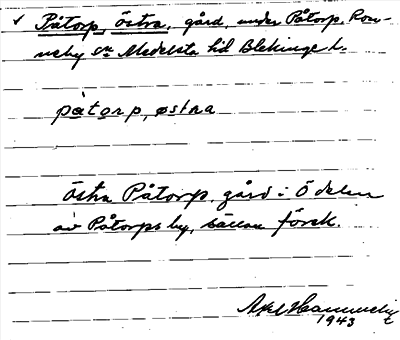 ✓ Påtorp, Östra, gård, under Påtorp. Ron-
neby sn Medelsta hd Blekinge l.
påtorp, östra
Östra Påtorp, gård i Ö delen
av Påtorps by, sällan försk.
Axel
1943